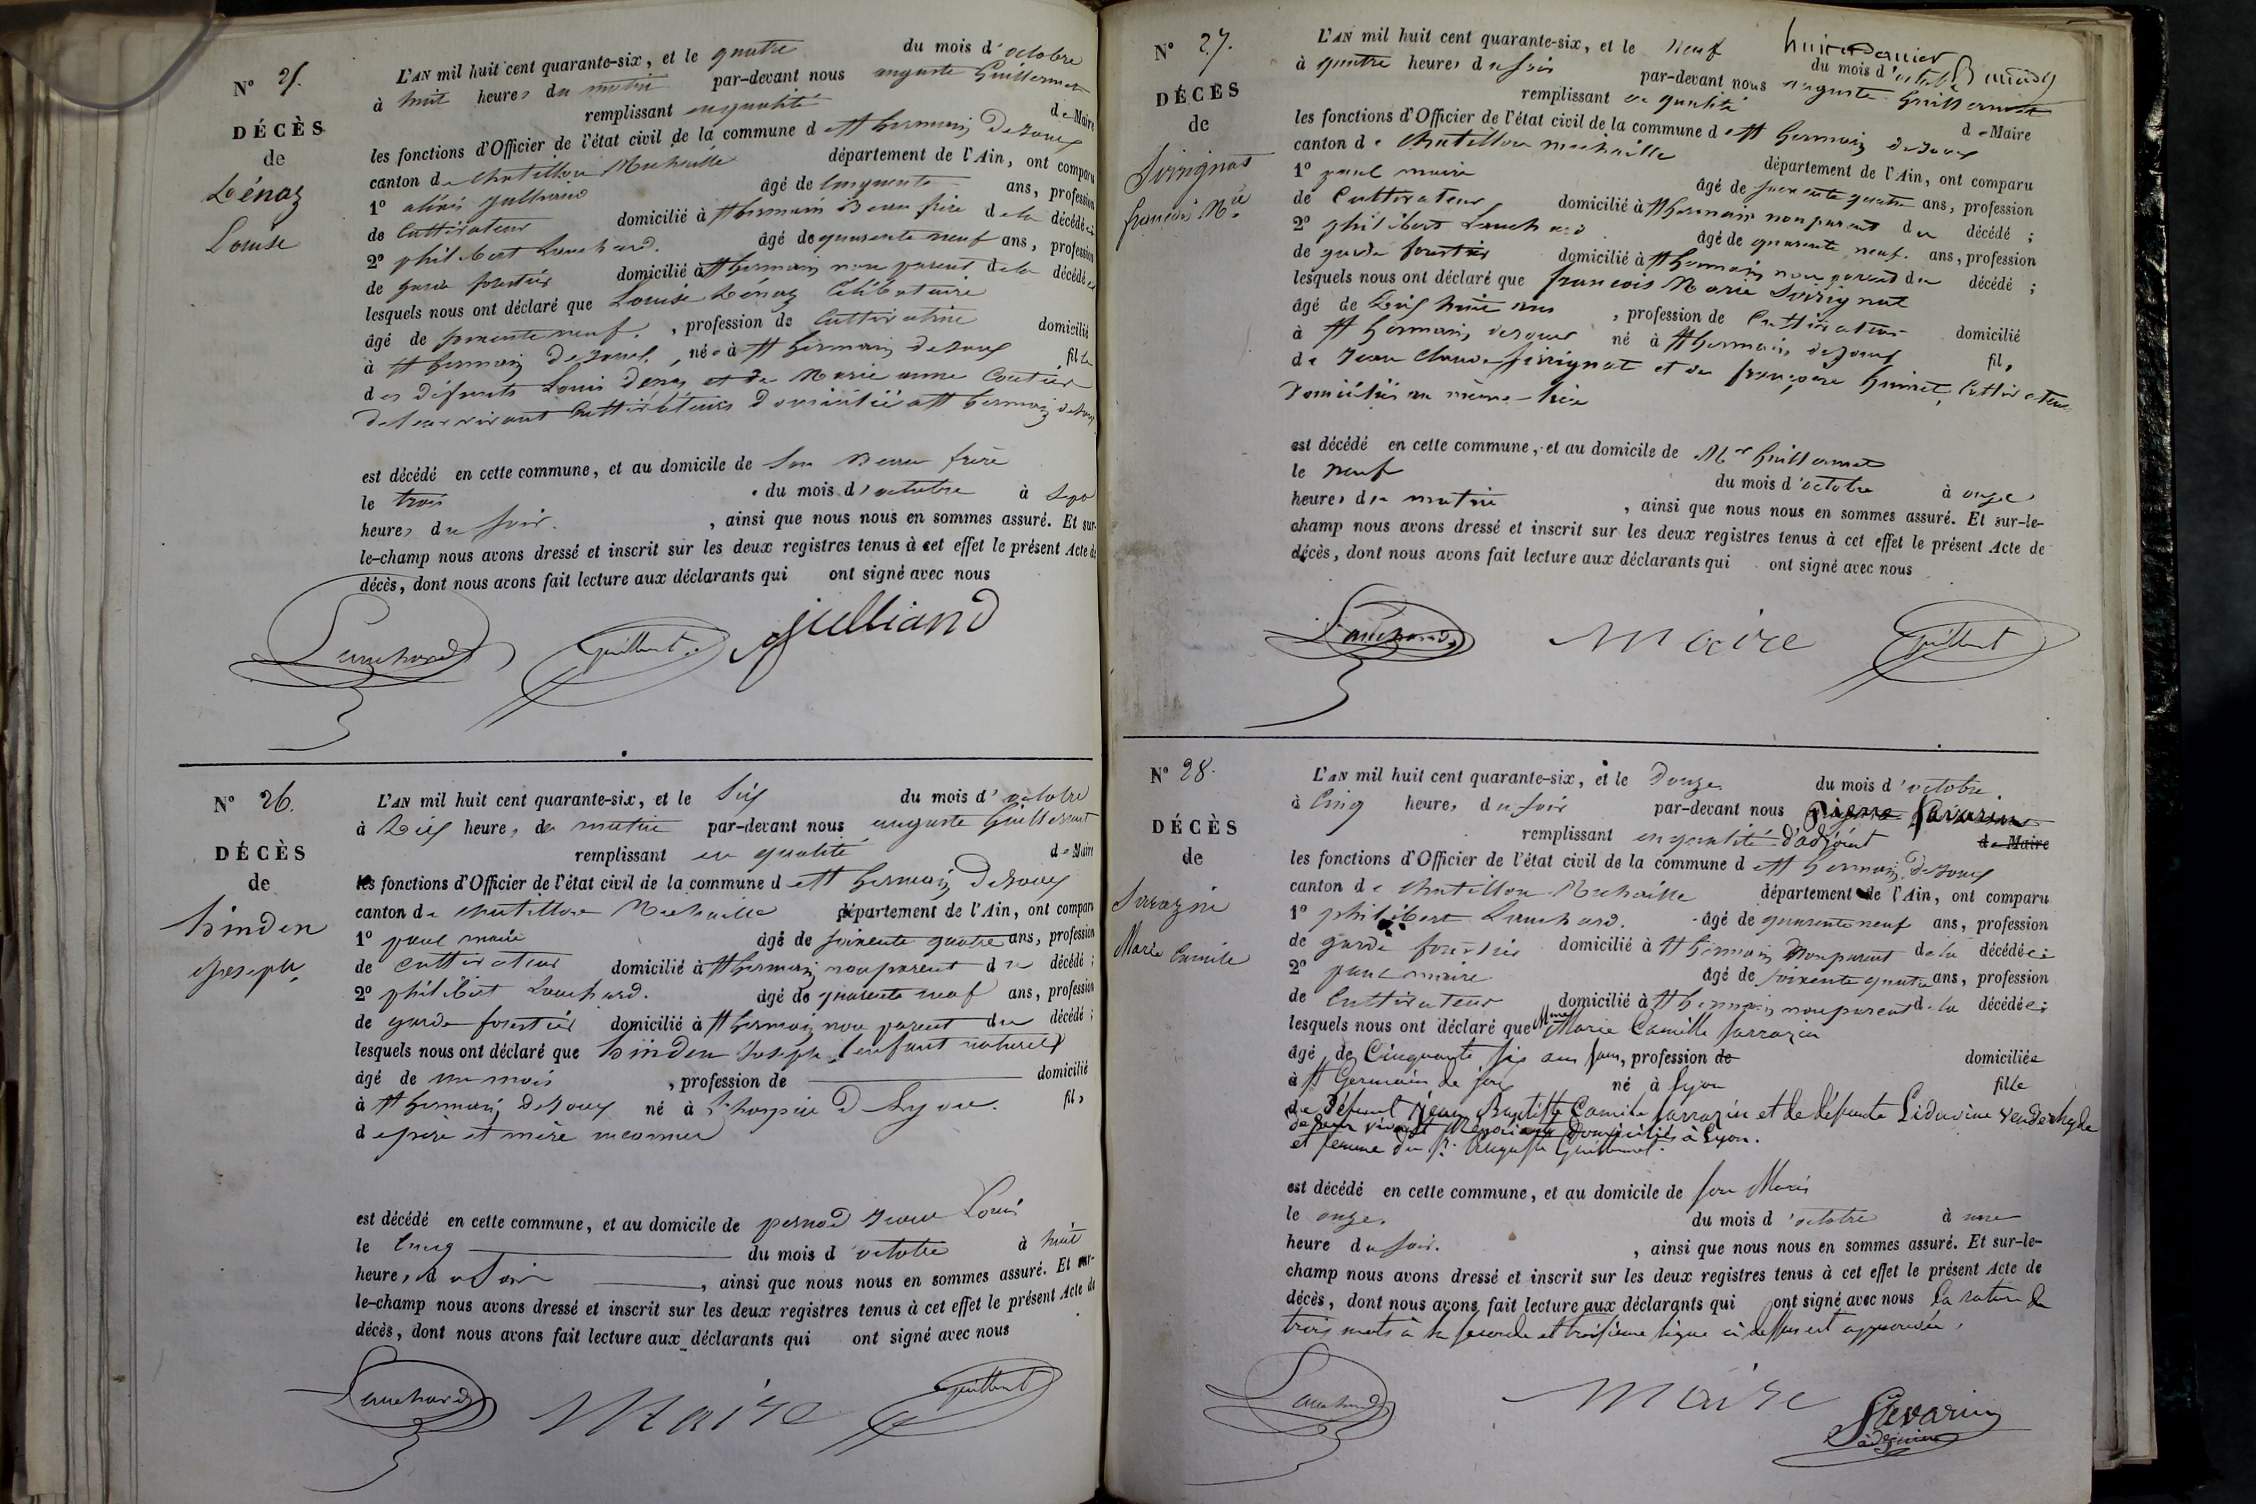 N° 25.
DÉCÈS
de
Dénaz
Louise
L'AN mil huit cent quarante-six, et le quatre du mois d'octobre
à huit heures du matin par-devant nous auguste Guillermet
remplissant en qualité de Maire
les fonctions d'Officier de l'état civil de la commune de St Germain de Joux
canton de Chatillon Michaille département de l'Ain, ont comparu
1° julliand âgé de cinquante ans, profession
de Cultivateur domicilié à St Germain Beau frère de la décédée
2° philibert Lanchard. âgé de quarante neuf ans, profession
de garde forestier domicilié à St Germain non parent de la décédée
lesquels nous ont déclaré que Louise Dénaz Célibataire
âgé de soixante neuf. , profession de Cultivatrice domicilié
à St Germain de Joux, née à St Germain de Joux fille
des défunts Louis Dénaz et de Marie anne
de leur vivant Cultivateurs domicilié a St Germain de Joux
est décédé en cette commune, et au domicile de Son Beau frère
le trois du mois d'octobre à Sept
heures du Soir. , ainsi que nous nous en sommes assuré. Et sur-
le-champ nous avons dressé et inscrit sur les deux registres tenus à cet effet le présent Acte de
décès, dont nous avons fait lecture aux déclarants qui ont signé avec nous
Lanchard julliand
N° 26.
DÉCÈS
de
hinden
Joseph,
L'AN mil huit cent quarante-six, et le Six du mois d'octobre
à Dix heures du matin par-devant nous auguste Guillermet
remplissant en qualité de Maire
les fonctions d'Officier de l'état civil de la commune de St Germain de Joux
canton de Chatillon Michaille département de l'Ain, ont comparu
1° paul maire âgé de soixante quatre ans, profession
de Cultivateur domicilié à St Germain non parent du décédé ;
2° philibert Lanchard. âgé de quarante neuf ans, profession
de garde forestier domicilié à St Germain non parent du décédé ;
lesquels nous ont déclaré que hinden Joseph, (enfant naturel)
âgé de un mois , profession de domicilié
à St Germain de Joux né à L'hospice de Lyon. fils
de père et mère inconnus
est décédé en cette commune, et au domicile de pernod Jean Louis
le Cinq du mois d'octobre à huit
heures du Soir , ainsi que nous nous en sommes assuré. Et sur-
le-champ nous avons dressé et inscrit sur les deux registres tenus à cet effet le présent Acte de
décès, dont nous avons fait lecture aux déclarants qui ont signé avec nous
Lanchard Maire
N° 27.
DÉCÈS
de
françois Mie
L'AN mil huit cent quarante-six, et le neuf du mois d'octobre
à quatre heures du soir par-devant nous auguste Guillermet
remplissant en qualité de Maire
les fonctions d'Officier de l'état civil de la commune de St Germain de Joux
canton de Chatillon michaille département de l'Ain, ont comparu
1° paul maire âgé de soixante quatre ans, profession
de Cultivateur domicilié à St Germain non parent du décédé ;
2° philibert Lanchard âgé de quarante neuf. ans, profession
de garde forestier domicilié à St Germain non parent du décédé ;
lesquels nous ont déclaré que françois Marie
âgé de Dix huit ans , profession de Cultivateur domicilié
à St Germain de Joux né à St Germain de Joux fils
de Jean Claude et de françoise Cultivateurs
Domiciliés au même lieu
est décédé en cette commune, et au domicile de Mr Guillermet
le neuf du mois d'octobre à onze
heures du matin , ainsi que nous nous en sommes assuré. Et sur-le-
champ nous avons dressé et inscrit sur les deux registres tenus à cet effet le présent Acte de
décès, dont nous avons fait lecture aux déclarants qui ont signé avec nous
Lanchard Maire
N° 28.
DÉCÈS
de
Sarrazin
Marie Camille
L'AN mil huit cent quarante-six, et le Douze du mois d'octobre
à Cinq heures du soir par-devant nous pierre Savarin
remplissant en qualité d'adjoint de Maire
les fonctions d'Officier de l'état civil de la commune de St Germain de Joux
canton de Chatillon Michaille département de l'Ain, ont comparu
1° philibert Lanchard. âgé de quarante neuf ans, profession
de garde forestier domicilié à St Germain Non parent de la décédée ;
2° paul maire âgé de soixante quatre ans, profession
de Cultivateur domicilié à St Germain non parent de la décédée ;
lesquels nous ont déclaré que Mme Marie Camille Sarrazin
âgé de Cinquante six ans sans, profession de domiciliée
à St Germain de Joux né à Lyon fille
de Défunt Jean Baptiste Camille Sarrazin et de défunte Liduvine
de leur vivant Domiciliés à Lyon.
et femme du Sr. Auguste Guillermet.
est décédé en cette commune, et au domicile de son Mari
le onze. du mois d'octobre à une
heure du soir. , ainsi que nous nous en sommes assuré. Et sur-le-
champ nous avons dressé et inscrit sur les deux registres tenus à cet effet le présent Acte de
décès, dont nous avons fait lecture aux déclarants qui ont signé avec nous La rature de
trois mots à la seconde et troisième ligne ci dessus est approuvée.
Lanchard Maire Savarin
adjoint